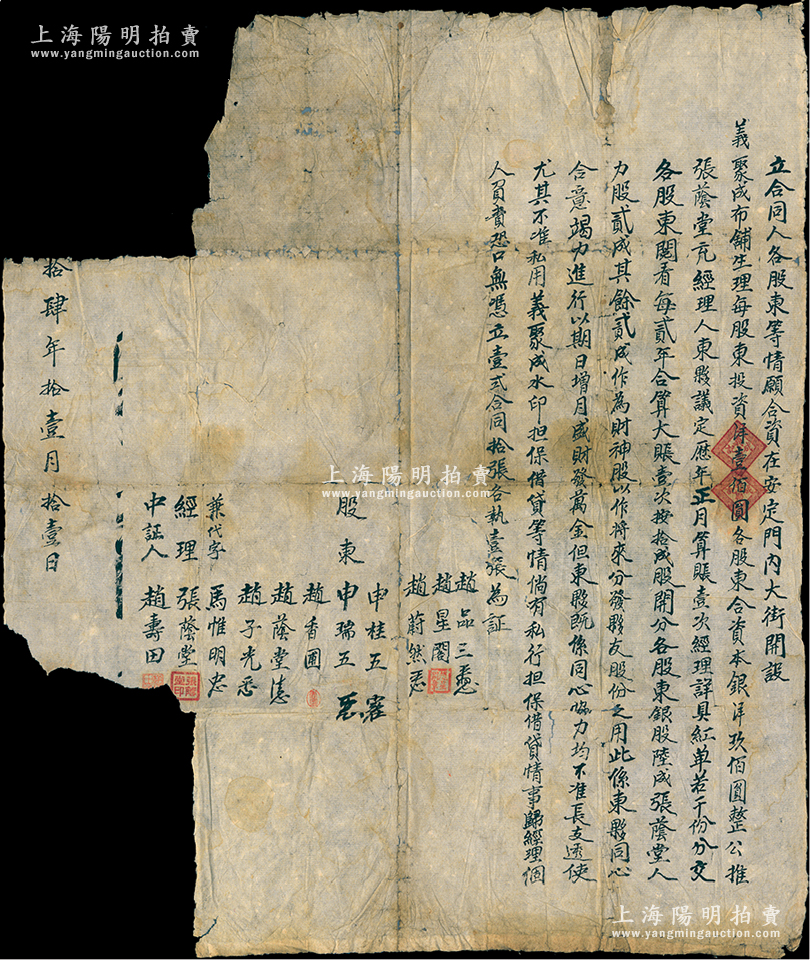 立合同人各股東等情願合資在安定門內大街開設
義聚成布舖生理每股東投資洋壹佰圓各股東合資本銀洋玖佰圓整公推
張蔭堂充經理人東夥議定歷年正月算賬壹次經理詳具紅單若干份分交
各股東閱看每貳年合算大賬壹次按拾成股開分各股東銀股陸成張蔭堂人
力股貳成其餘貳成作為財神股以作將來分發夥友股份之用此係東夥同心
合意竭力進行以期日增月盛財發萬金但東夥既係同心協力均不准長支透使
尤其不准私用義聚成水印担保借貸等情倘有私行担保借貸情事歸經理個
人負責恐口無憑立壹式合同拾張各執壹張為証
趙品三
趙星閣
趙蔚然
股東
申桂五
申瑞五
趙香圃
趙蔭堂
趙子光
兼代字
馬惟明
經理
張蔭堂
中証人
趙壽田
拾肆年拾壹月拾壹日
上海陽明拍賣
www.yangmingauction.com
上海陽明拍賣
www.yangmingauction.com
上海陽明拍賣
www.yangmingauction.com